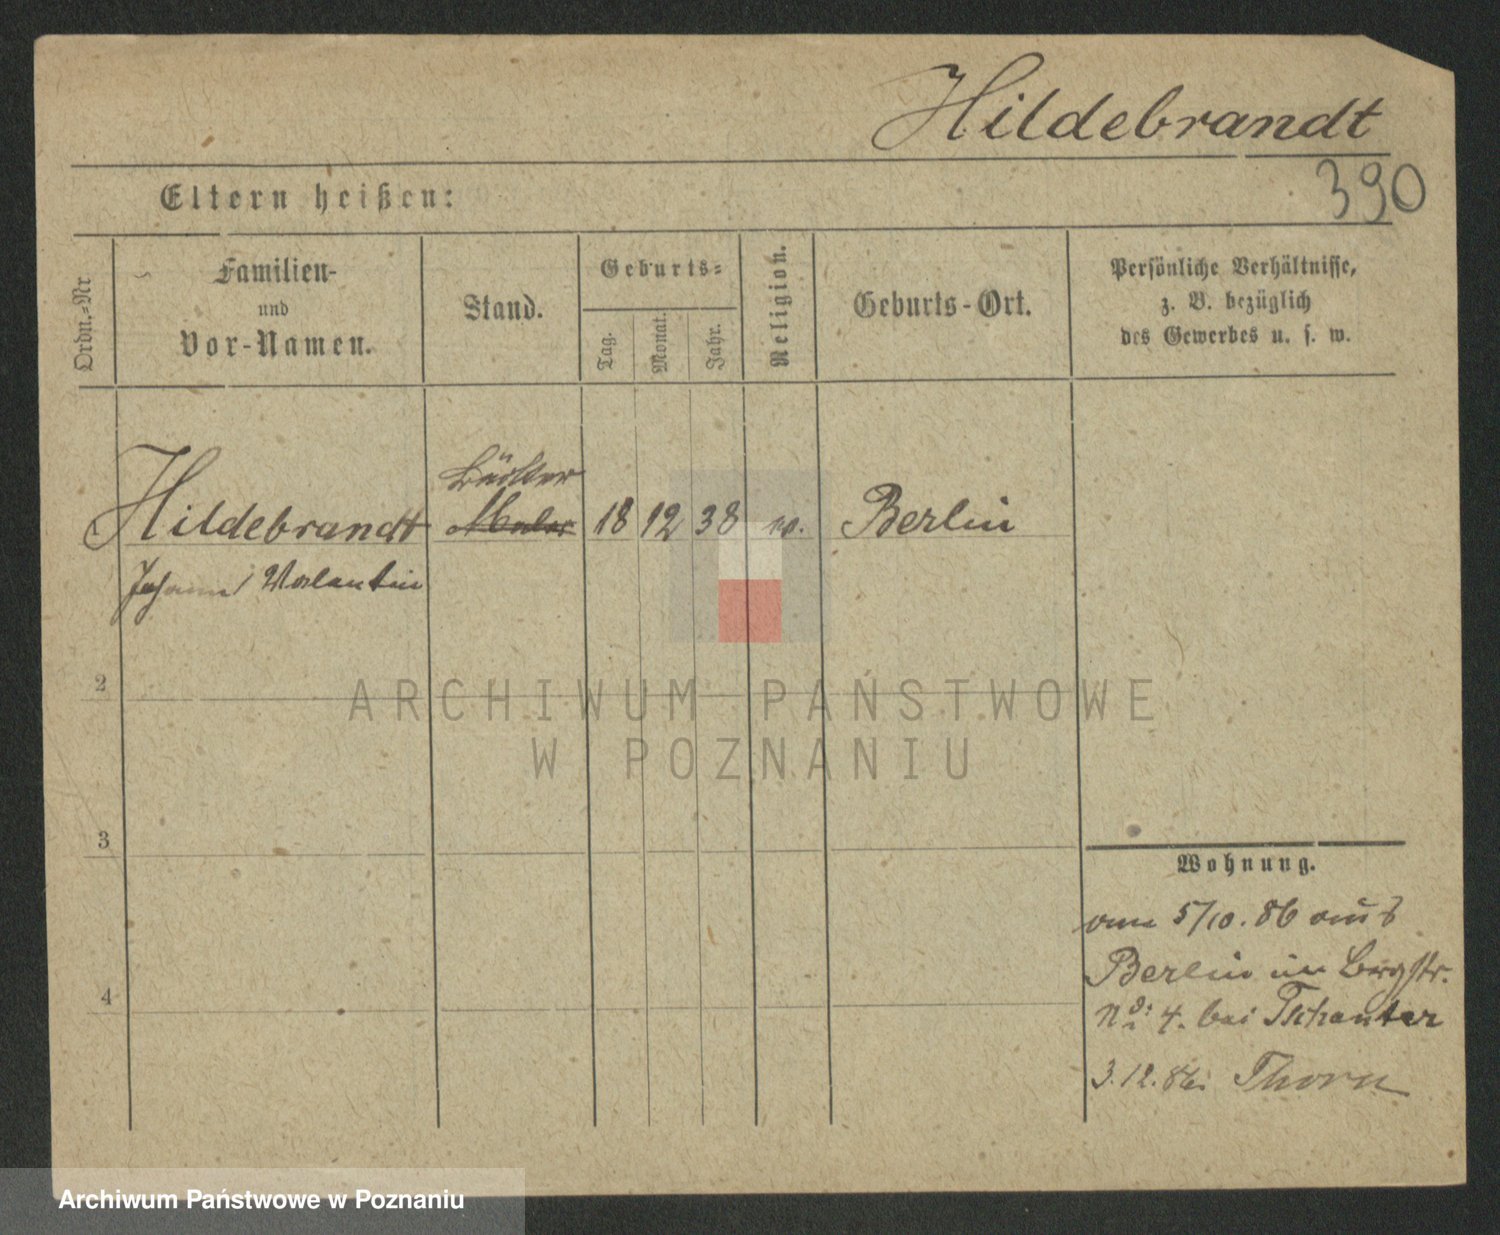 Hildebrandt
390
Eltern heißen:
Ordn.-Nr
Familien-
und
Vor-Namen.
Stand.
Geburts-
Tag.
Monat.
Jahr.
Religion.
Geburts-Ort.
Persönliche Verhältnisse,
z. B. bezüglich
des Gewerbes u. s. w.
Hildebrandt
Maler
18 12 38
Berlin
Johann Valentin
2
3
4
Wohnung.
am 5/10. 86 aus
Berlin in Bergstr.
No: 4. bei
3.12.86 Thorn
ARCHIWUM PAŃSTWOWE
W POZNANIU
Archiwum Państwowe w Poznaniu